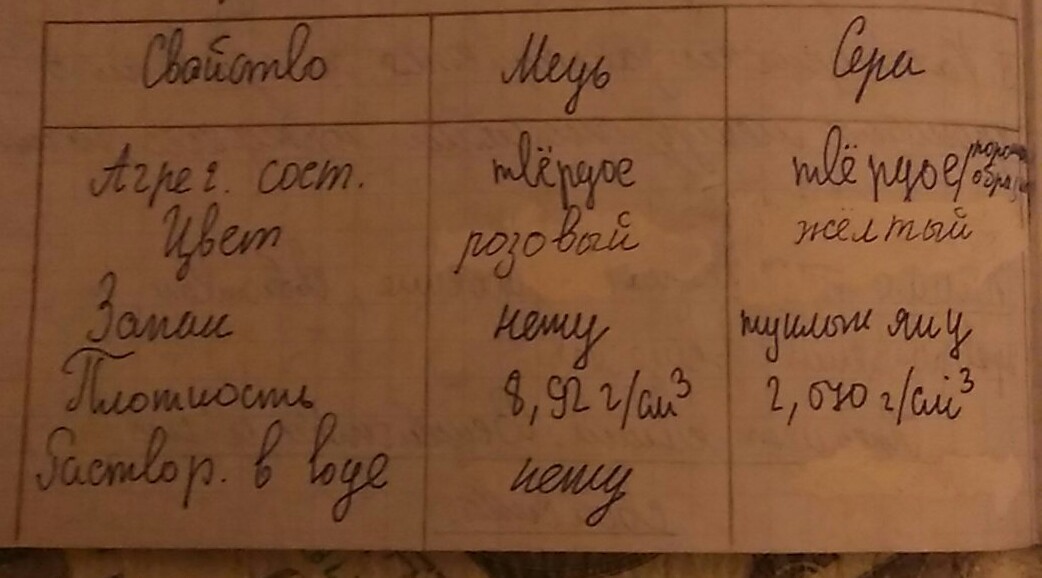 Свойство Медь Сера
Агрег. сост. твёрдое твёрдое/порошо
образн
Цвет розовый жёлтый
Запах нету тухлых яиц
Плотность 8,92 г/см³ 2,070 г/см³
Раствор. в воде нету